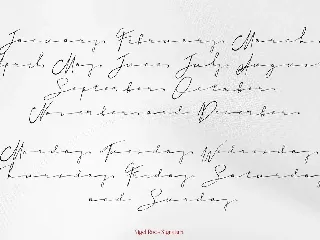 January February March
April May June July August
September October
November and December
Monday Tuesday Wednesday
Thursday Friday Saturday
and Sunday